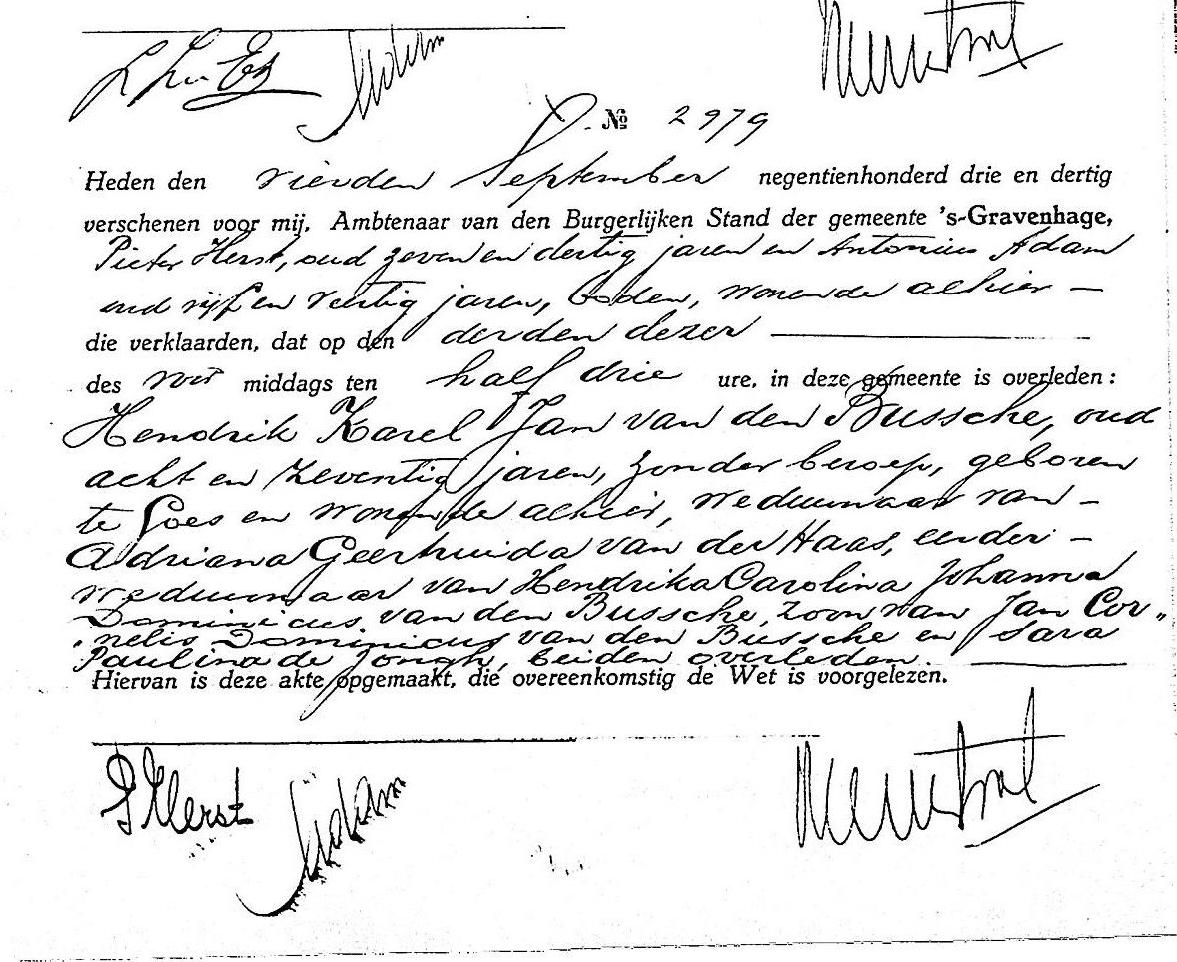 Adam
№ 2979
Heden den vierden September negentienhonderd drie en dertig
verschenen voor mij, Ambtenaar van den Burgerlijken Stand der gemeente 's-Gravenhage,
Pieter Herst, oud zeven en dertig jaren en Antonius Adam
oud vijf en veertig jaren, boden, wonende alhier —
die verklaarden, dat op den derden dezer —
des voor middags ten half drie ure, in deze gemeente is overleden:
Hendrik Karel Jan van den Bussche, oud
acht en zeventig jaren, zonder beroep, geboren
te Goes en wonende alhier, weduwnaar van –
Adriana Geertruida van der Haas, eerder –
weduwnaar van Hendrika Carolina Johanna
Dominicus van den Bussche, zoon van Jan Cor„
„nelis Dominicus van den Bussche en Sara
Paulina de Jongh, beiden overleden. —
Hiervan is deze akte opgemaakt, die overeenkomstig de Wet is voorgelezen.
P Herst Adam